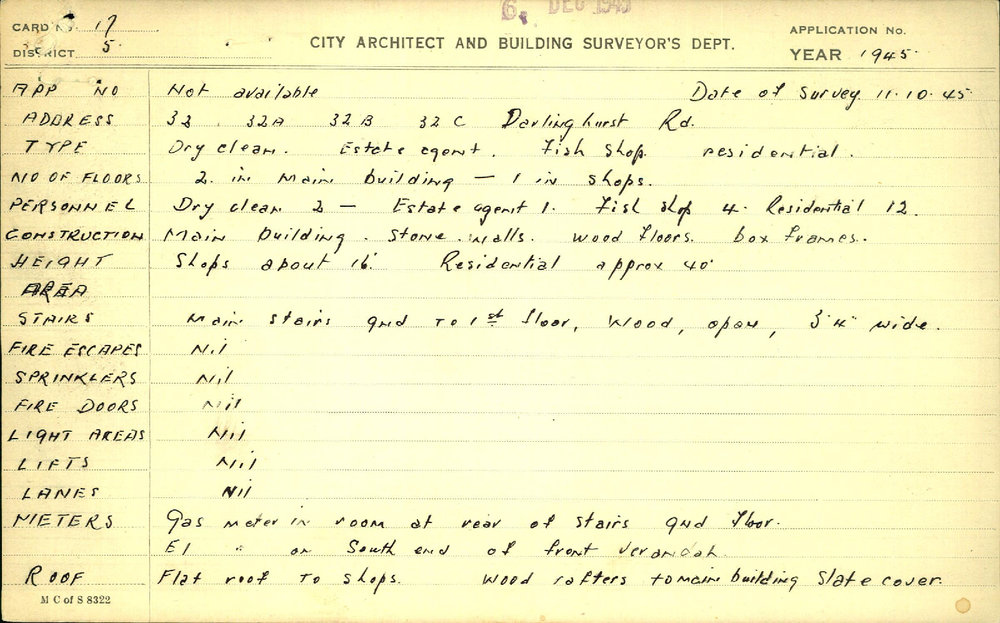 6 DEC 1945
CARD No. 17
DISTRICT 5
CITY ARCHITECT AND BUILDING SURVEYOR'S DEPT.
APPLICATION No.
YEAR 1945
APP NO Not available Date of Survey 11.10.45
ADDRESS 32 32A 32B 32C Darlinghurst Rd.
TYPE Dry clean. Estate agent. Fish Shop. residential.
NO OF FLOORS 2 in main building — 1 in shops.
PERSONNEL Dry clean 2 — Estate agent 1. Fish shop 4. Residential 12.
CONSTRUCTION Main building. Stone walls. wood floors. box frames.
HEIGHT Shops about 16' Residential approx 40'
AREA
STAIRS Main stairs gnd to 1st floor, wood, open, 3'4" wide.
FIRE ESCAPES Nil
SPRINKLERS Nil
FIRE DOORS Nil
LIGHT AREAS Nil
LIFTS Nil
LANES Nil
METERS Gas meter in room at rear of stairs gnd floor.
El " on South end of front verandah.
ROOF Flat roof to shops. Wood rafters to main building Slate cover.
M C of S 8322